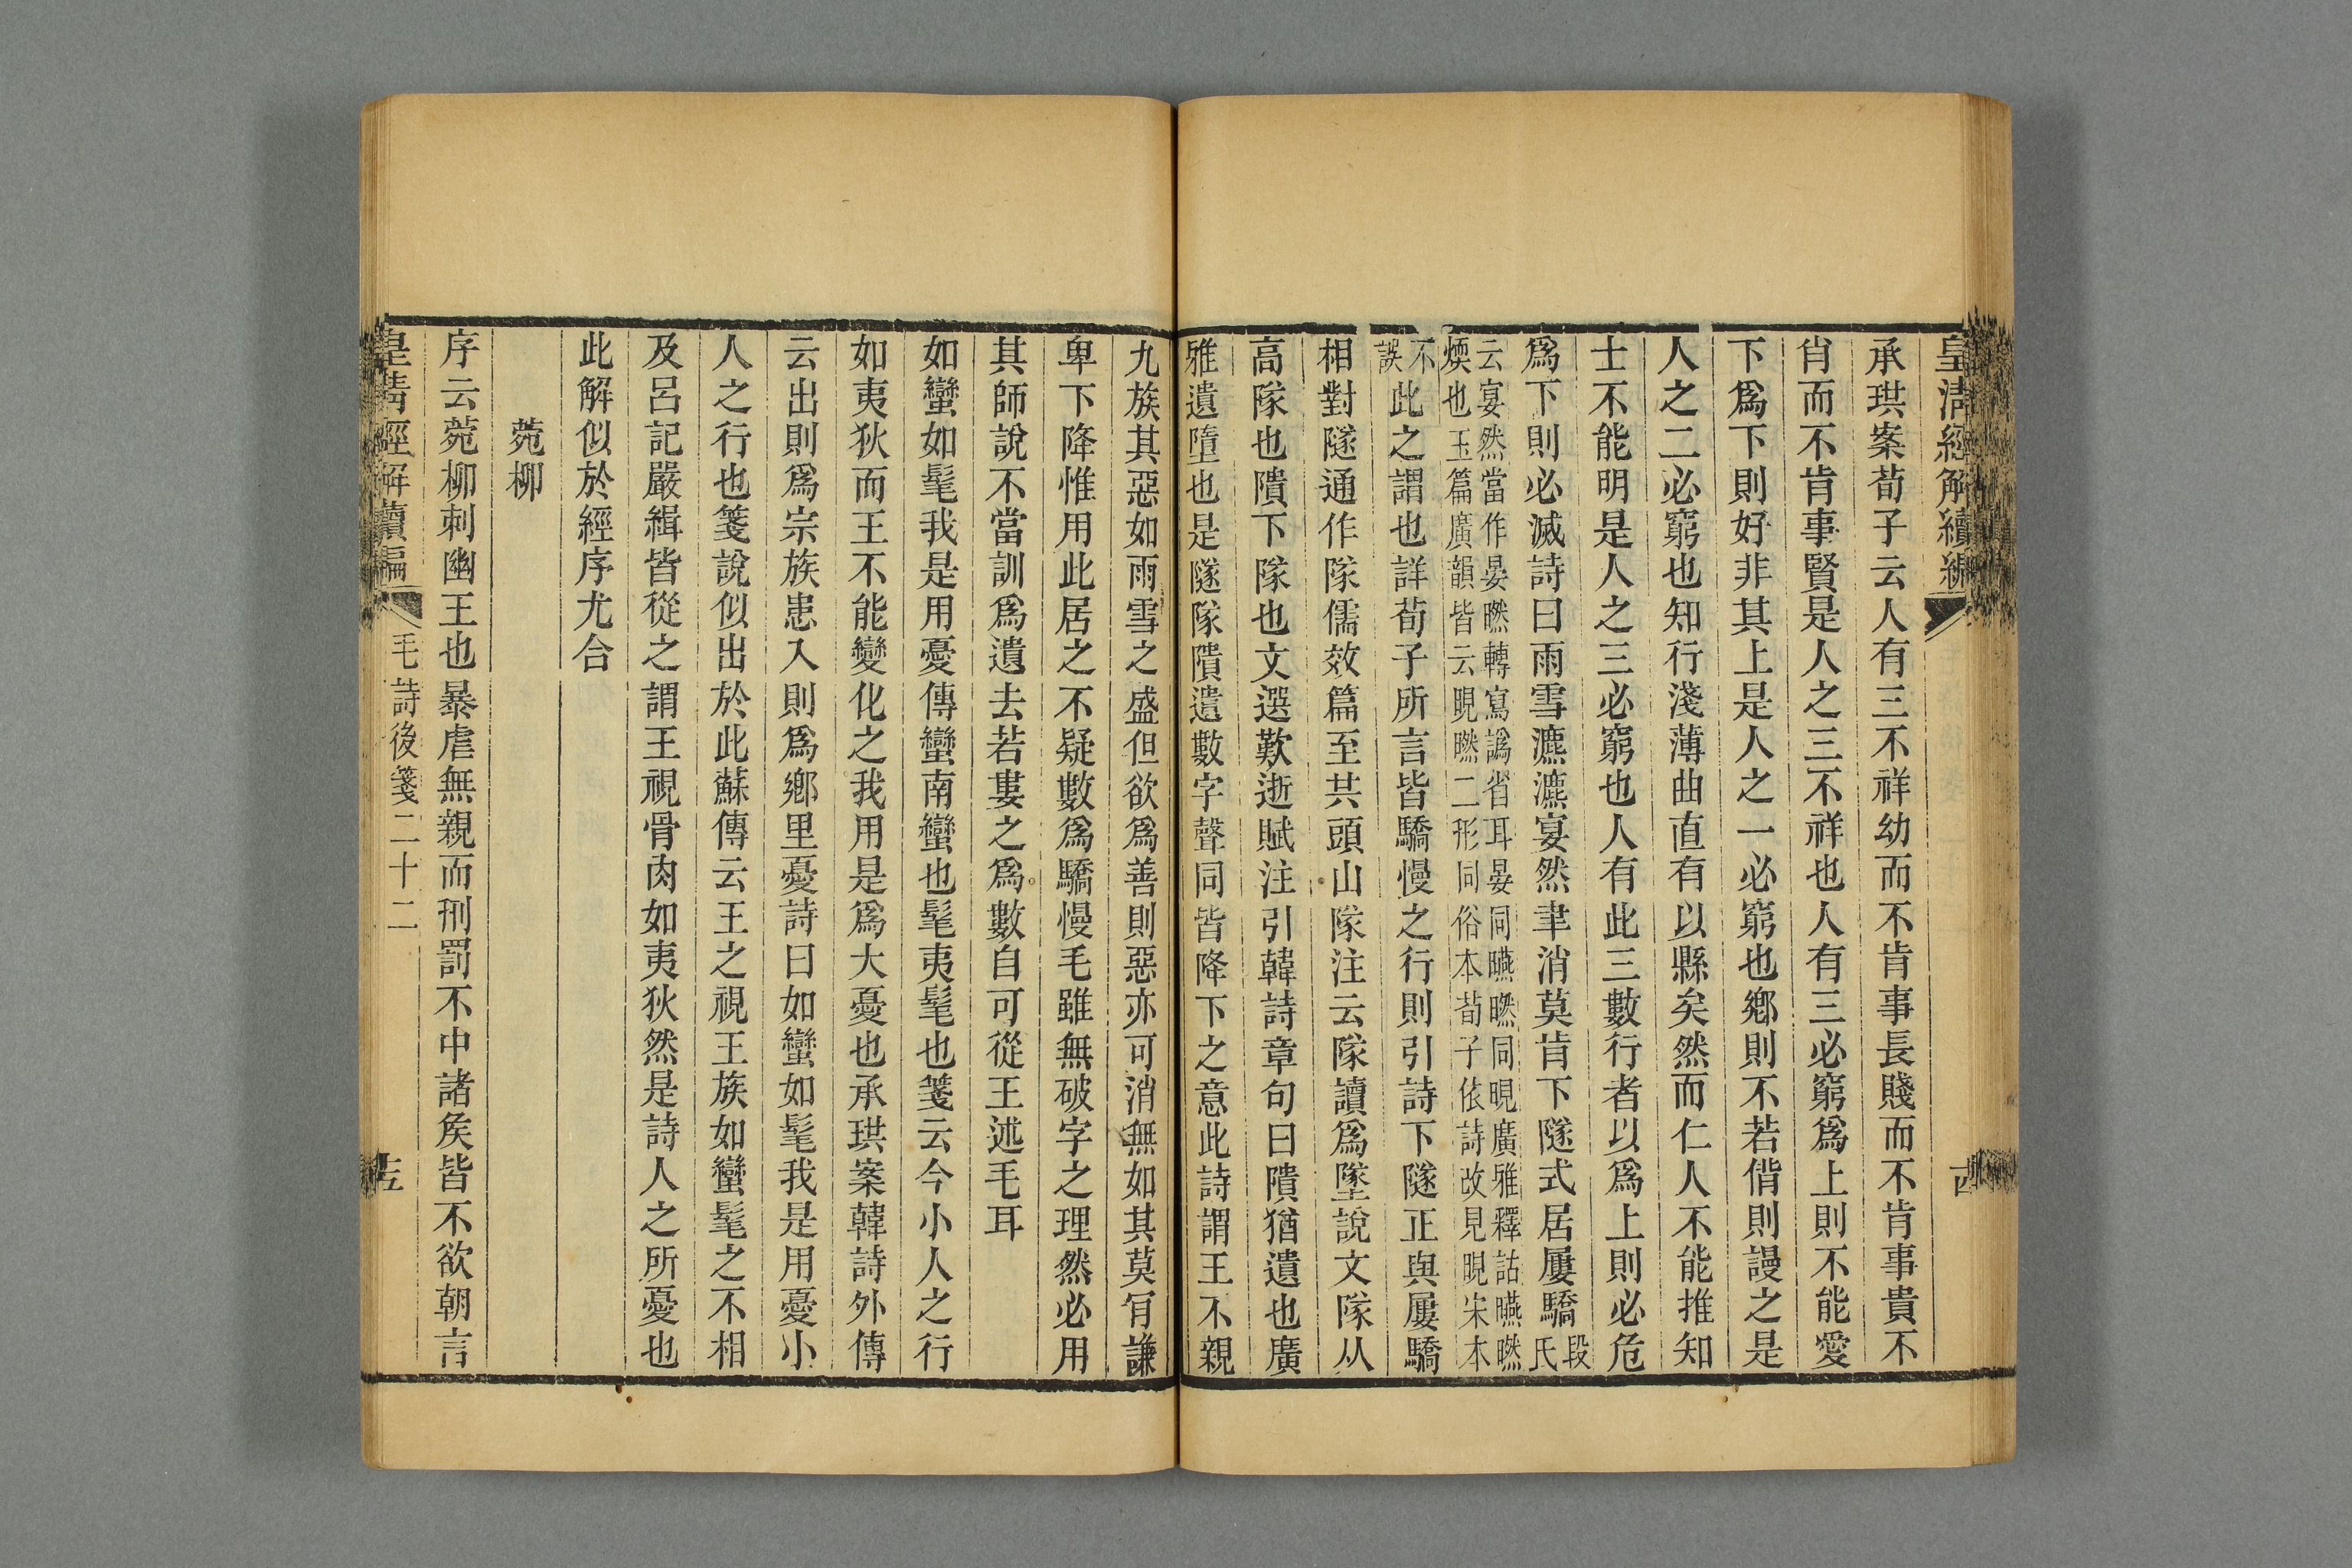 皇清經解續編
承珙案荀子云人有三不祥幼而不肯事長賤而不肯事貴不
肖而不肯事賢是人之三不祥也人有三必窮爲上則不能愛
下爲下則好非其上是人之一必窮也鄉則不若偝則謾之是
人之二必窮也知行淺薄曲直有以縣矣然而仁人不能推知
士不能明是人之三必窮也人有此三數行者以爲上則必危
爲下則必滅詩曰雨雪瀌瀌宴然聿消莫肯下隧式居屢驕段氏
云宴然當作晏㬗轉寫譌省耳晏同曣㬗同晛廣雅釋詁曣㬗
煗也玉篇廣韻皆云晛㬗二形同俗本荀子依詩改見晛宋本
不誤此之謂也詳荀子所言皆驕慢之行則引詩下隧正與屢驕
相對隧通作隊儒效篇至共頭山隊注云隊讀爲墜說文隊从
高隊也隤下隊也文選歎逝賦注引韓詩章句曰隤猶遺也廣
雅遺墮也是隧隊隤遺數字聲同皆降下之意此詩謂王不親
九族其惡如雨雪之盛但欲爲善則惡亦可消無如其莫肎謙
卑下降惟用此居之不疑數爲驕慢毛雖無破字之理然必用
其師說不當訓爲遺去若婁之爲數自可從王述毛耳
如蠻如髦我是用憂傳蠻南蠻也髦夷髦也箋云今小人之行
如夷狄而王不能變化之我用是爲大憂也承珙案韓詩外傳
云出則爲宗族患入則爲鄉里憂詩曰如蠻如髦我是用憂小
人之行也箋說似出於此蘇傳云王之視王族如蠻髦之不相
及呂記嚴緝皆從之謂王視骨肉如夷狄然是詩人之所憂也
此解似於經序尤合
菀柳
序云菀柳刺幽王也暴虐無親而刑罰不中諸矦皆不欲朝言
皇清經解續編
毛詩後箋二十二